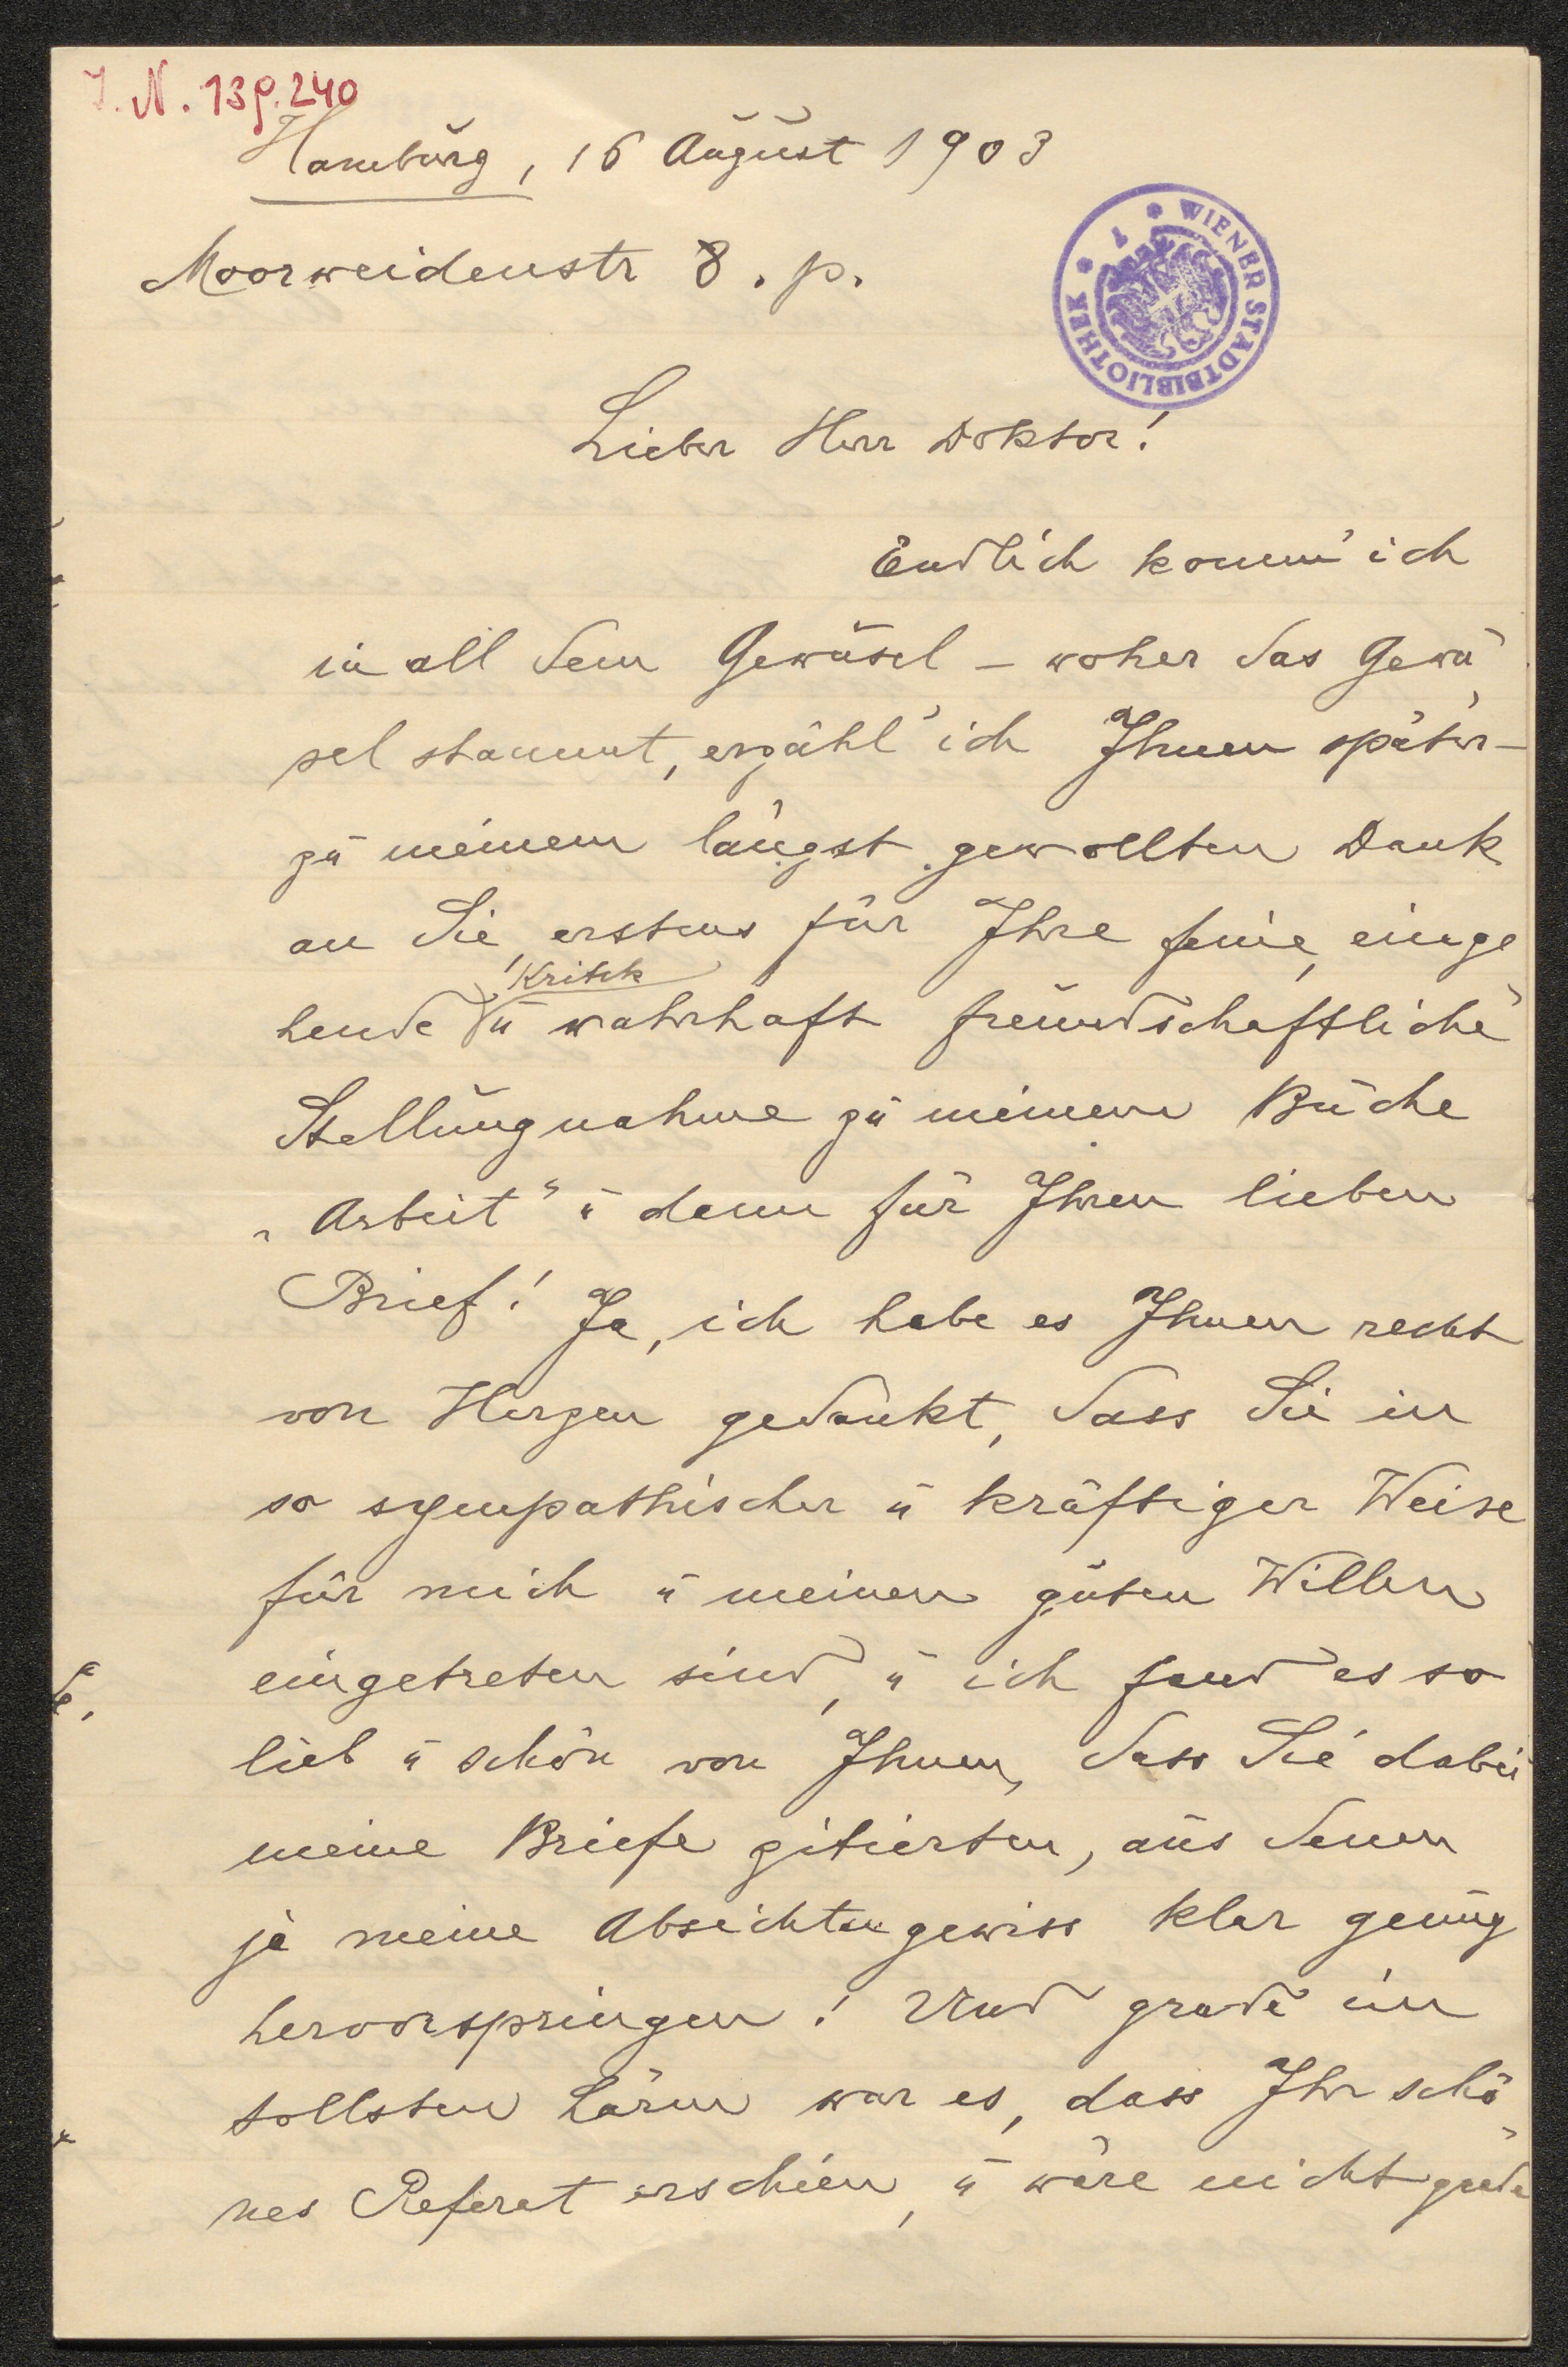 I. N. 139.240
Hamburg, 16 August 1903
Moorweidenstr 8. p.
WIENER STADTBIBLIOTHEK
Lieber Herr Doktor!
Endlich komm' ich
in all dem Gewüsel – woher das Gewü
sel stammt, erzähl' ich Ihnen später –
zu meinem längst gewollten Dank
an Sie, erstens für Ihre feine, einge
Kritik
hende u wahrhaft freundschaftliche
Stellungnahme zu meinem Buche
„Arbeit" u dann für Ihren lieben
Brief! Ja, ich habe es Ihnen recht
von Herzen gedankt, dass Sie in
so sympathischer u kräftiger Weise
für mich u meinen guten Willen
eingetreten sind, u ich fand es so
lieb u schön von Ihnen, dass Sie dabei
meine Briefe zitierten, aus denen
ja meine Absichten gewiss klar genug
hervorspringen! Und grade im
tollsten Lärm war es, dass Ihr schö
nes Referat erschien, u wäre nicht grade